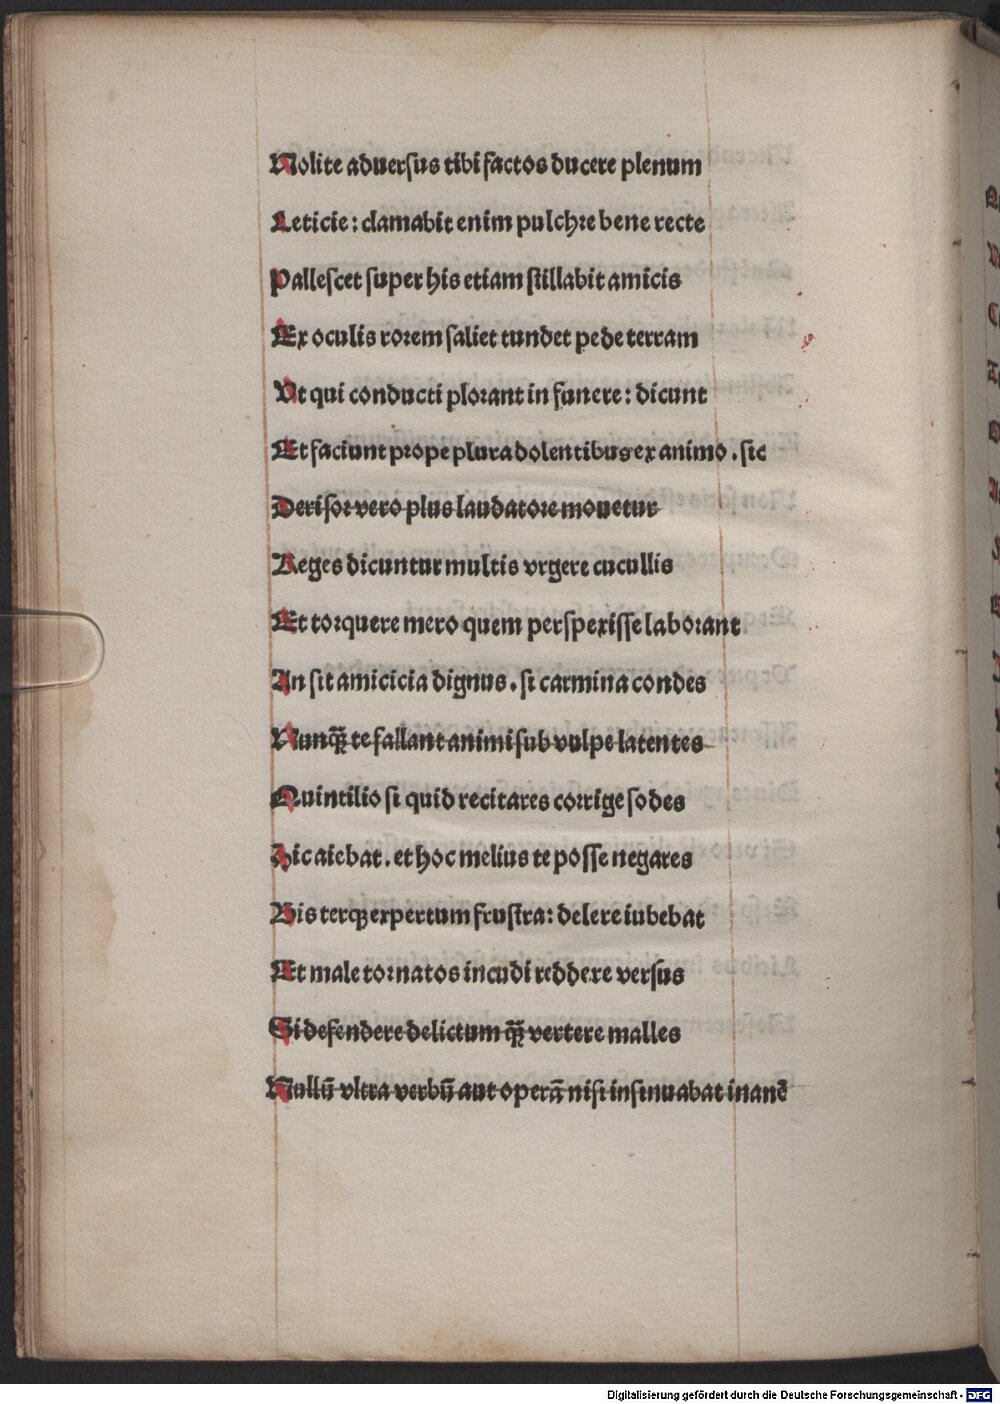 Nolite aduersus tibi factos ducere plenum
Leticie: clamabit enim pulchre bene recte
Pallescet super his etiam stillabit amicis
Ex oculis rorem saliet tundet pede terram
Ut qui conducti plorant in funere: dicunt
Et faciunt prope plura dolentibus ex animo. sic
Derisor vero plus laudatore mouetur
Reges dicuntur multis vrgere cucullis
Et torquere mero quem perspexisse laborant
An sit amicicia dignus. si carmina condes
Nunqȝ te fallant animi sub vulpe latentes
Quintilio si quid recitares corrige sodes
Hic aiebat. et hoc melius te posse negares
Bis terqȝ expertum frustra: delere iubebat
Et male tornatos incudi reddere versus
Si defendere delictum qȝ̄ vertere malles
Nullū vltra verbū aut operā nisi insinuabat inanē
Digitalisierung gefördert durch die Deutsche Forschungsgemeinschaft - DFG